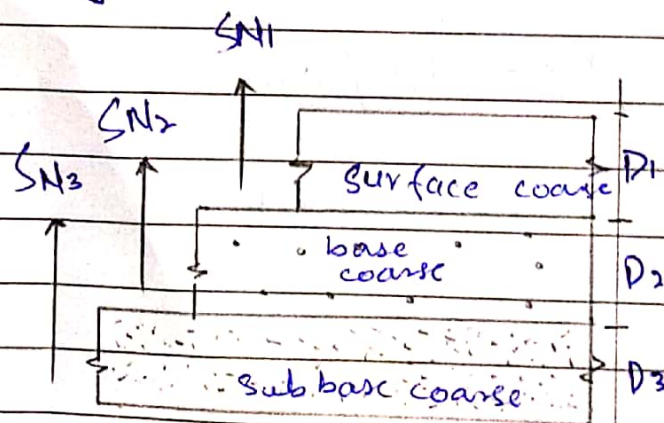 SN1
SN2
SN3
surface coarse
D1
base
coarse
D2
subbase coarse
D3